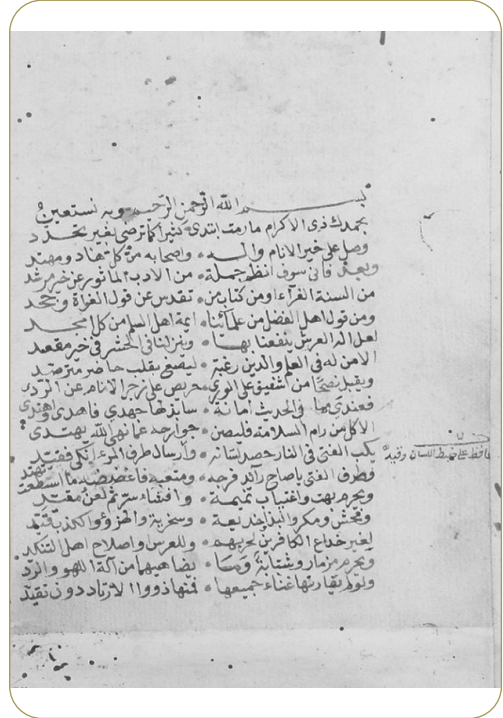 بسم الله الرحمن الرحيم وبه نستعين
بحمدك ذى الاكرام ما رمت ابتدى كثيرا كما ترضى بغير تحدد
وصل على خير الانام واله • واصحابه من كل هاد ومهتد
وبعد فانى سوف انظم جملة • من الادب المأثور عن خير مرشد
من السنة الغراء او من كتاب من • تقدس عن قول الغواة وجحد
ومن قول اهل الفضل من علمائنا • ايمة اهل السلم من كل امجد
لعل اله العرش ينفعنا بها • وينزلنا في الحشر في خير مقعد
الا من له في العلم والدين رغبة • ليصغ بقلب حاضر مترصد
ويقبل نصحا من شفيق على الورى • حريص على زجر الانام عن الردى
فعندي الحديث امانة • سابذلها جهدي فاهدى واهتدى
الا كل من رام السلامة فليصن • جوارحه عما نهى الله يهتدى
يكب الفتى في النار حصد لسانه • وارسال طرف المرء انكى فقيد
وطرف الفتى يا صاح رائد فرجه • ومتعبه فاغضضه ما اسطعت تهتد
ويحرم بهت واغتياب نميمة • وافشاء سر ثم لعن مقيد
وفحش ومكر والبذا خديعة • وسخرية والهزؤ والكذب قيد
لغير خداع الكافرين بحربهم • وللعرس او اصلاح اهل التنكد
ويحرم مزمار وشبابة وما • يضاهيهما من آلة اللهو والرد
ولو لم يقارنها غناء جميعها • فمنها ذووا الاوتار دون تقيد
حفظ اللسان وقيد